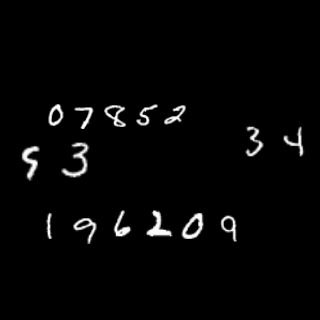 07852
34
93
196209